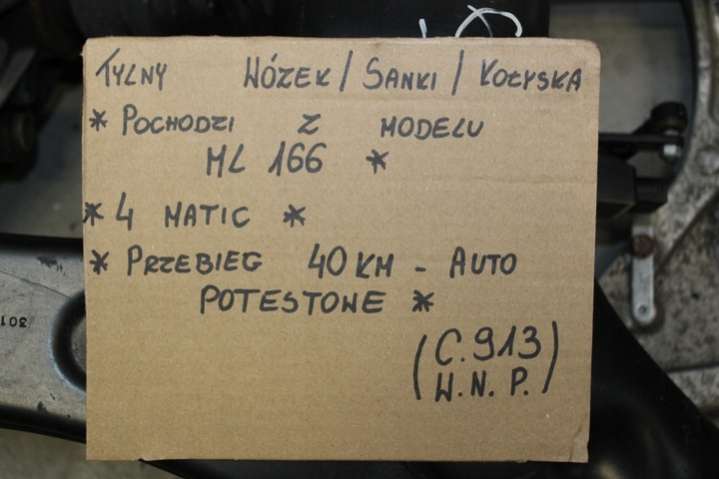 TYLNY WÓZEK / SANKI / KOŁYSKA
* POCHODZI Z MODELU
ML 166 *
* 4 MATIC *
* PRZEBIEG 40 KM - AUTO
POTESTONE *
(C.913)
W.N.P.)
301